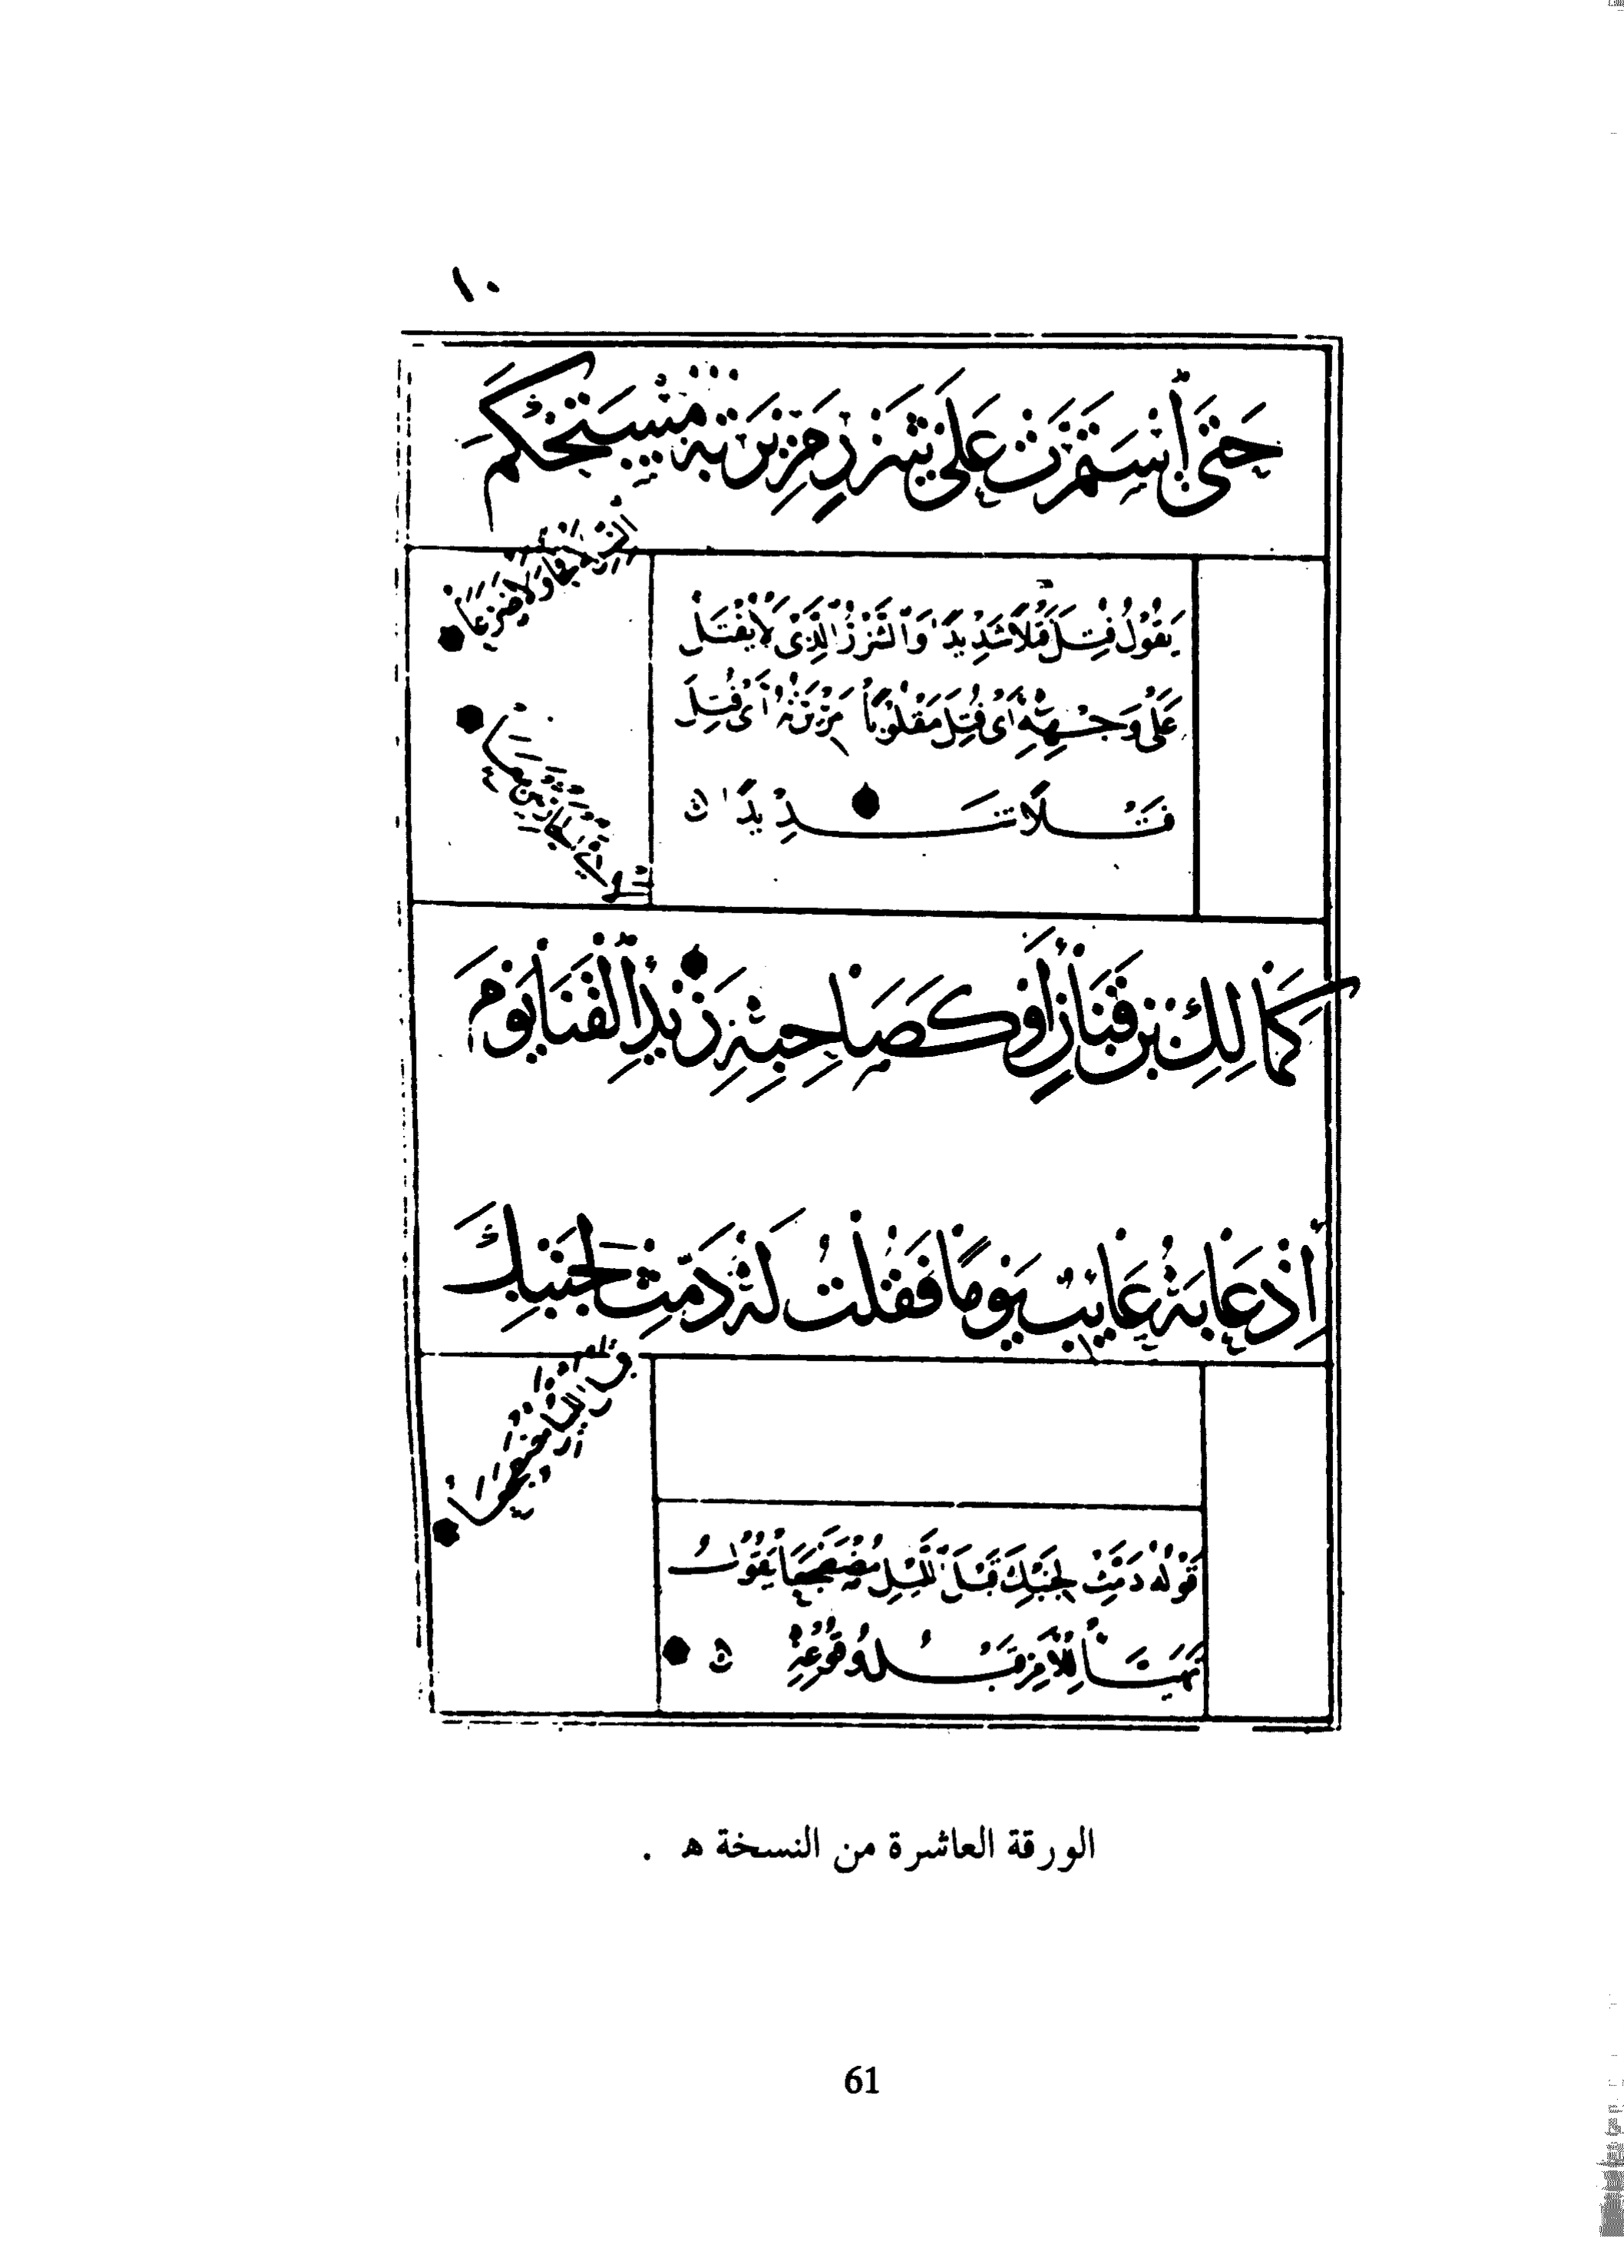 ١٠
حَتَّى أَسْتَمَرَّتْ عَلَى شَزْرٍ مَرِيرَتُهُ مُسْتَحْكِمَ
الرَّأْىِ لَا قَحْمًا وَلَا ضَرَعَا
يَقُولُ فُتِلَ فَتْلًا شَدِيدًا وَالشَّزْرُ الَّذِى لَا يُفْتَلُ
عَلَى وَجْهِهِ أَىْ فُتِلَ مَقْلُوبًا مَرِيرَتُهُ أَىْ فُتِلَ
فَتْلًا شَدِيدًا
كَمَالِكِ بْنِ قَنَانٍ أَوْ كَصَاحِبِهِ زَيْدِ الْقَنَا يَوْمَ
إِذْ عَابَهُ عَائِبٌ يَوْمًا فَقُلْتُ لَهُ دَمِّثْ لِجَنْبِكَ
قَبْلَ اللَّيْلِ مُضْطَجَعَا
قَوْلُهُ دَمِّثْ لِجَنْبِكَ قَبْلَ اللَّيْلِ مُضْطَجَعًا يَقُولُ
تَهَيَّأْ لِلْأَمْرِ قَبْلَ وُقُوعِهِ
الورقة العاشرة من النسخة هـ .
61